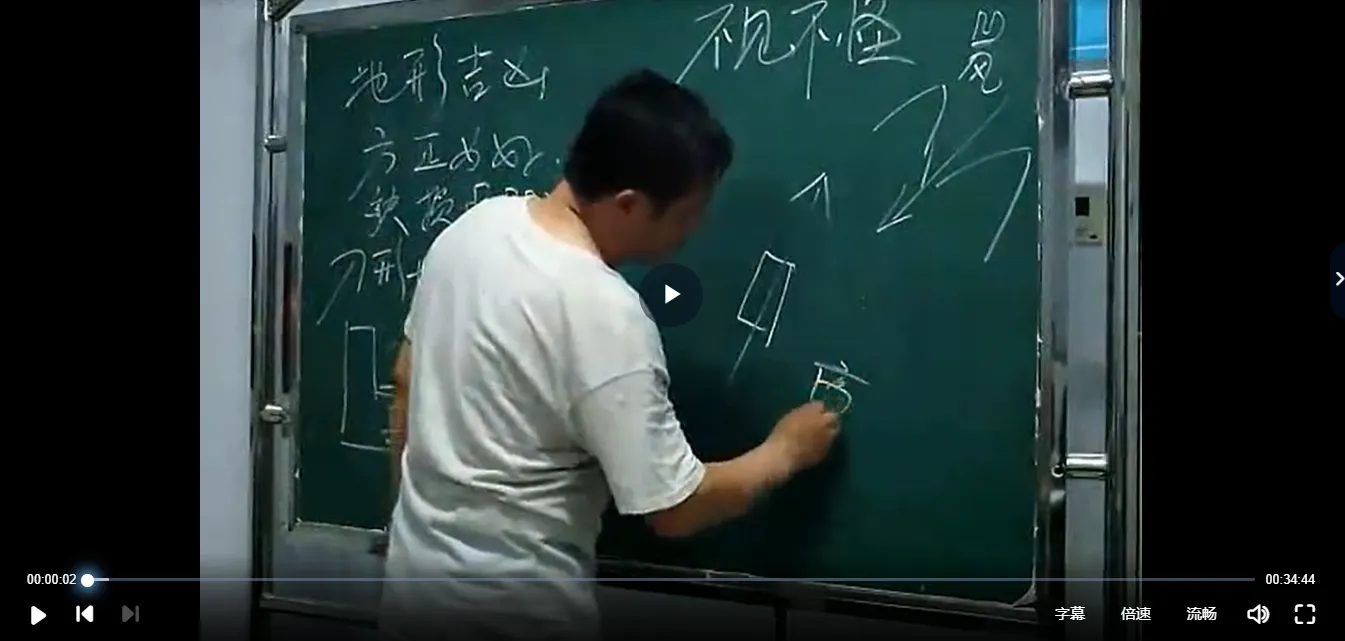 地形吉凶
不见不怪
凹风
方正为好
缺损
刀形
00:00:02
00:34:44
字幕 倍速 流畅